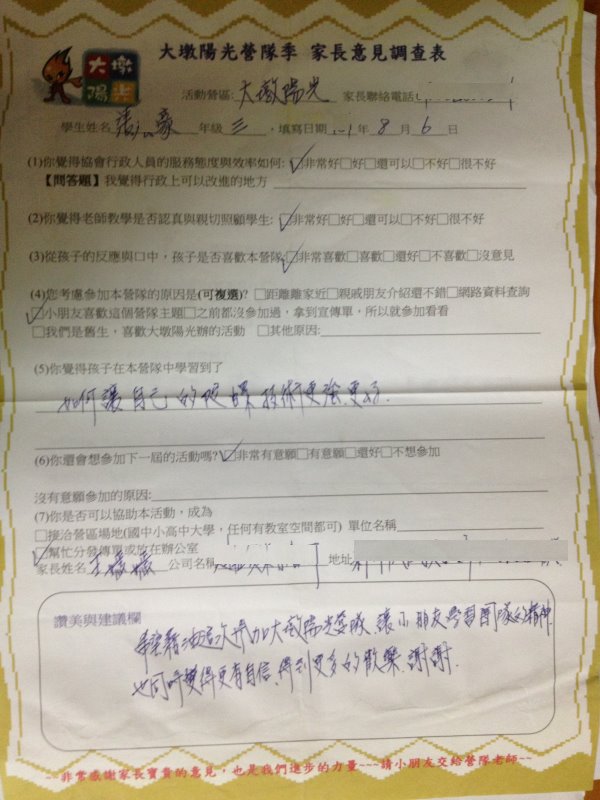 大墩陽光
大墩陽光營隊季 家長意見調查表
活動營區: 大墩陽光 家長聯絡電話
學生姓名 年級 三 , 填寫日期 年 8 月 6 日
(1)你覺得協會行政人員的服務態度與效率如何: ✓□非常好□好□還可以□不好□很不好
【問答題】我覺得行政上可以改進的地方
(2)你覺得老師教學是否認真與親切照顧學生: ✓□非常好□好□還可以□不好□很不好
(3)從孩子的反應與口中，孩子是否喜歡本營隊✓□非常喜歡□喜歡□還好□不喜歡□沒意見
(4)您考慮參加本營隊的原因是(可複選)? □距離離家近□親戚朋友介紹還不錯□網路資料查詢
✓□小朋友喜歡這個營隊主題□之前都沒參加過，拿到宣傳單，所以就參加看看
□我們是舊生，喜歡大墩陽光辦的活動 □其他原因:
(5)你覺得孩子在本營隊中學習到了
如何讓自己的 技術更強更好.
(6)你還會想參加下一屆的活動嗎? ✓□非常有意願□有意願□還好□不想參加
沒有意願參加的原因:
(7)你是否可以協助本活動，成為
□接洽營區場地(國中小高中大學，任何有教室空間都可) 單位名稱
✓□幫忙分發傳單或放在辦公室
家長姓名 公司名稱 地址
讚美與建議欄
希望藉由這次參加大墩陽光營隊、讓小朋友學習團隊的精神
也同時變得更有自信、得到更多的歡樂. 謝謝.
~~非常感謝家長寶貴的意見，也是我們進步的力量~~~請小朋友交給營隊老師~~